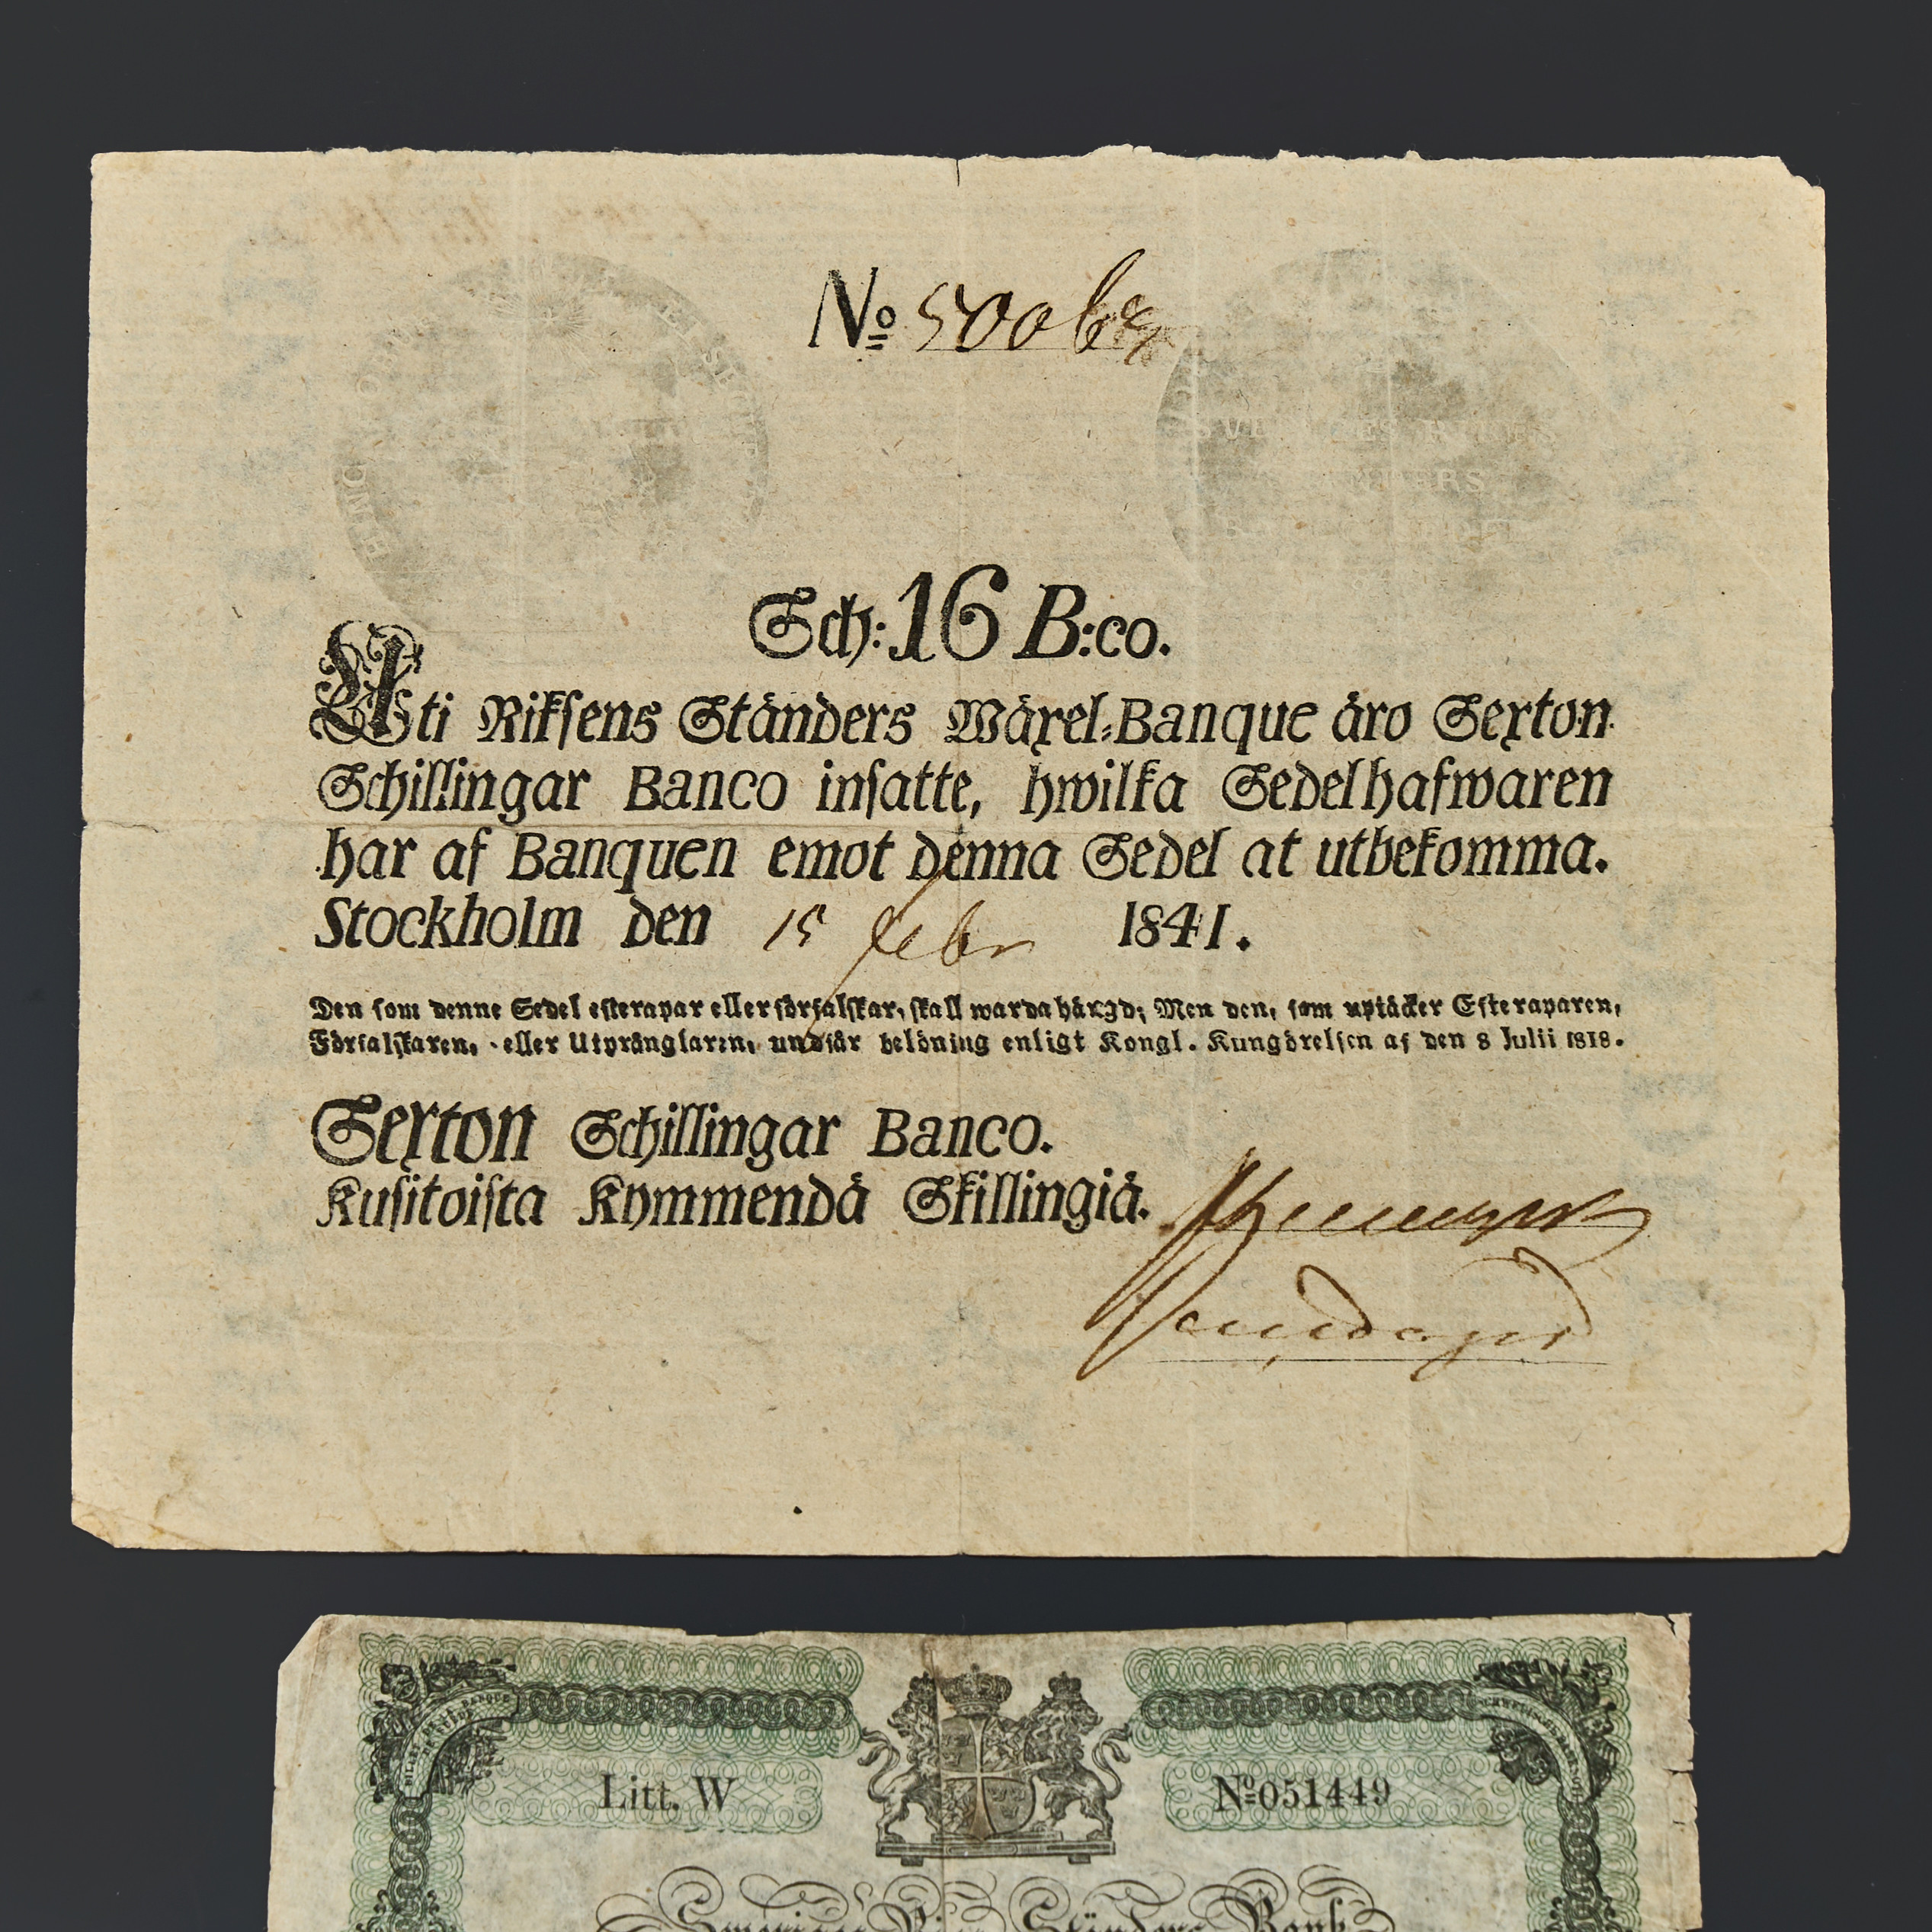 No
Sch: 16 B:co.
Uti Riksens Ständers Wäxel-Banque äro Sexton
Schillingar Banco insatte, hwilka Sedelhafwaren
har af Banquen emot denna Sedel at utbekomma.
Stockholm den 15 Febr 1841.
Den som denne Sedel efterapar eller förfalskar, skall warda hängd; Men den, som uptäcker Efteraparen,
Förfalskaren, eller Utprånglaren, undfår belöning enligt Kongl. Kungörelsen af den 8 Julii 1818.
Sexton Schillingar Banco.
Kusitoista Kymmendä Skillingiä.
Litt. W
No 051449
Ständers Bank